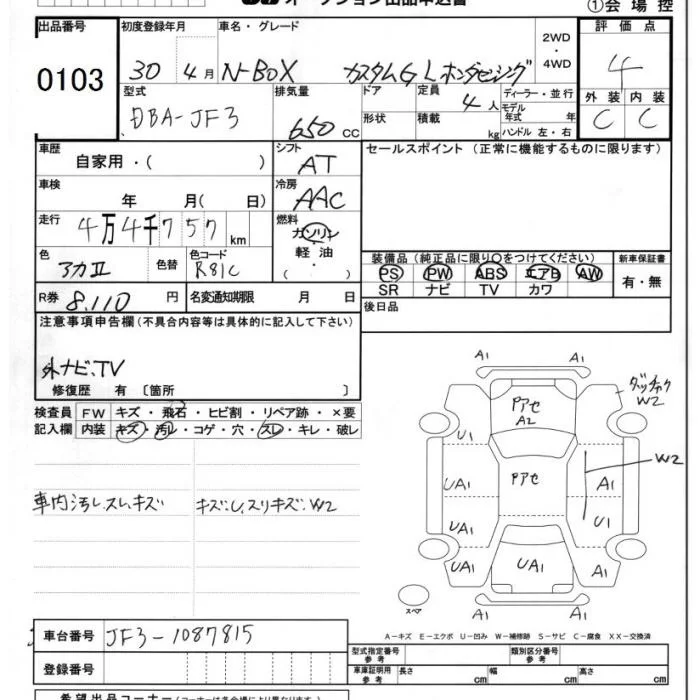 オークション出品申込書
①会場控
出品番号 初度登録年月 車名・グレード 評価点
0103 30年 4月 N-BOX カスタムG Lホンダセンシング 2WD・4WD 4
型式 排気量 ドア 定員 ディーラー・並行 外装 内装
DBA-JF3 650cc 形状 4人 積載 kg モデル年式 年 ハンドル 左・右 C C
車歴 自家用・( ) シフト AT セールスポイント(正常に機能するものに限ります)
車検 年 月( 日) 冷房 AAC
走行 4万4千757km 燃料 ガソリン 軽油 ・( )
色 アカII 色替 色コード R81C
装備品(純正品に限り○をつけてください) 新車保証書
PS PW ABS エアB AW 有・無
SR ナビ TV カワ
R券 8,110円 名変通知期限 月 日 後日品
注意事項申告欄(不具合内容等は具体的に記入して下さい)
外ナビ、TV
修復歴 有〔箇所 〕
検査員記入欄 FW キズ・飛石・ヒビ割・リペア跡・×要
内装 キズ・汚レ・コゲ・穴・スレ・キレ・破レ
車内汚レ、スレ、キズ キズ、U、スリキズ、W2
A1 A1
Pアセ A2
U1
W2
Pアセ
W2
UA1 A1
UA1 U1
UA1 UA1 A1
スペア A1 A1
A-キズ E-エクボ U-凹み W-補修跡 S-サビ C-腐食 XX-交換済
車台番号 JF3-1087815
型式指定番号 参考 類別区分番号 参考
登録番号 車庫証明用 参考 長さ cm 幅 cm 高さ cm
希望出品コーナー